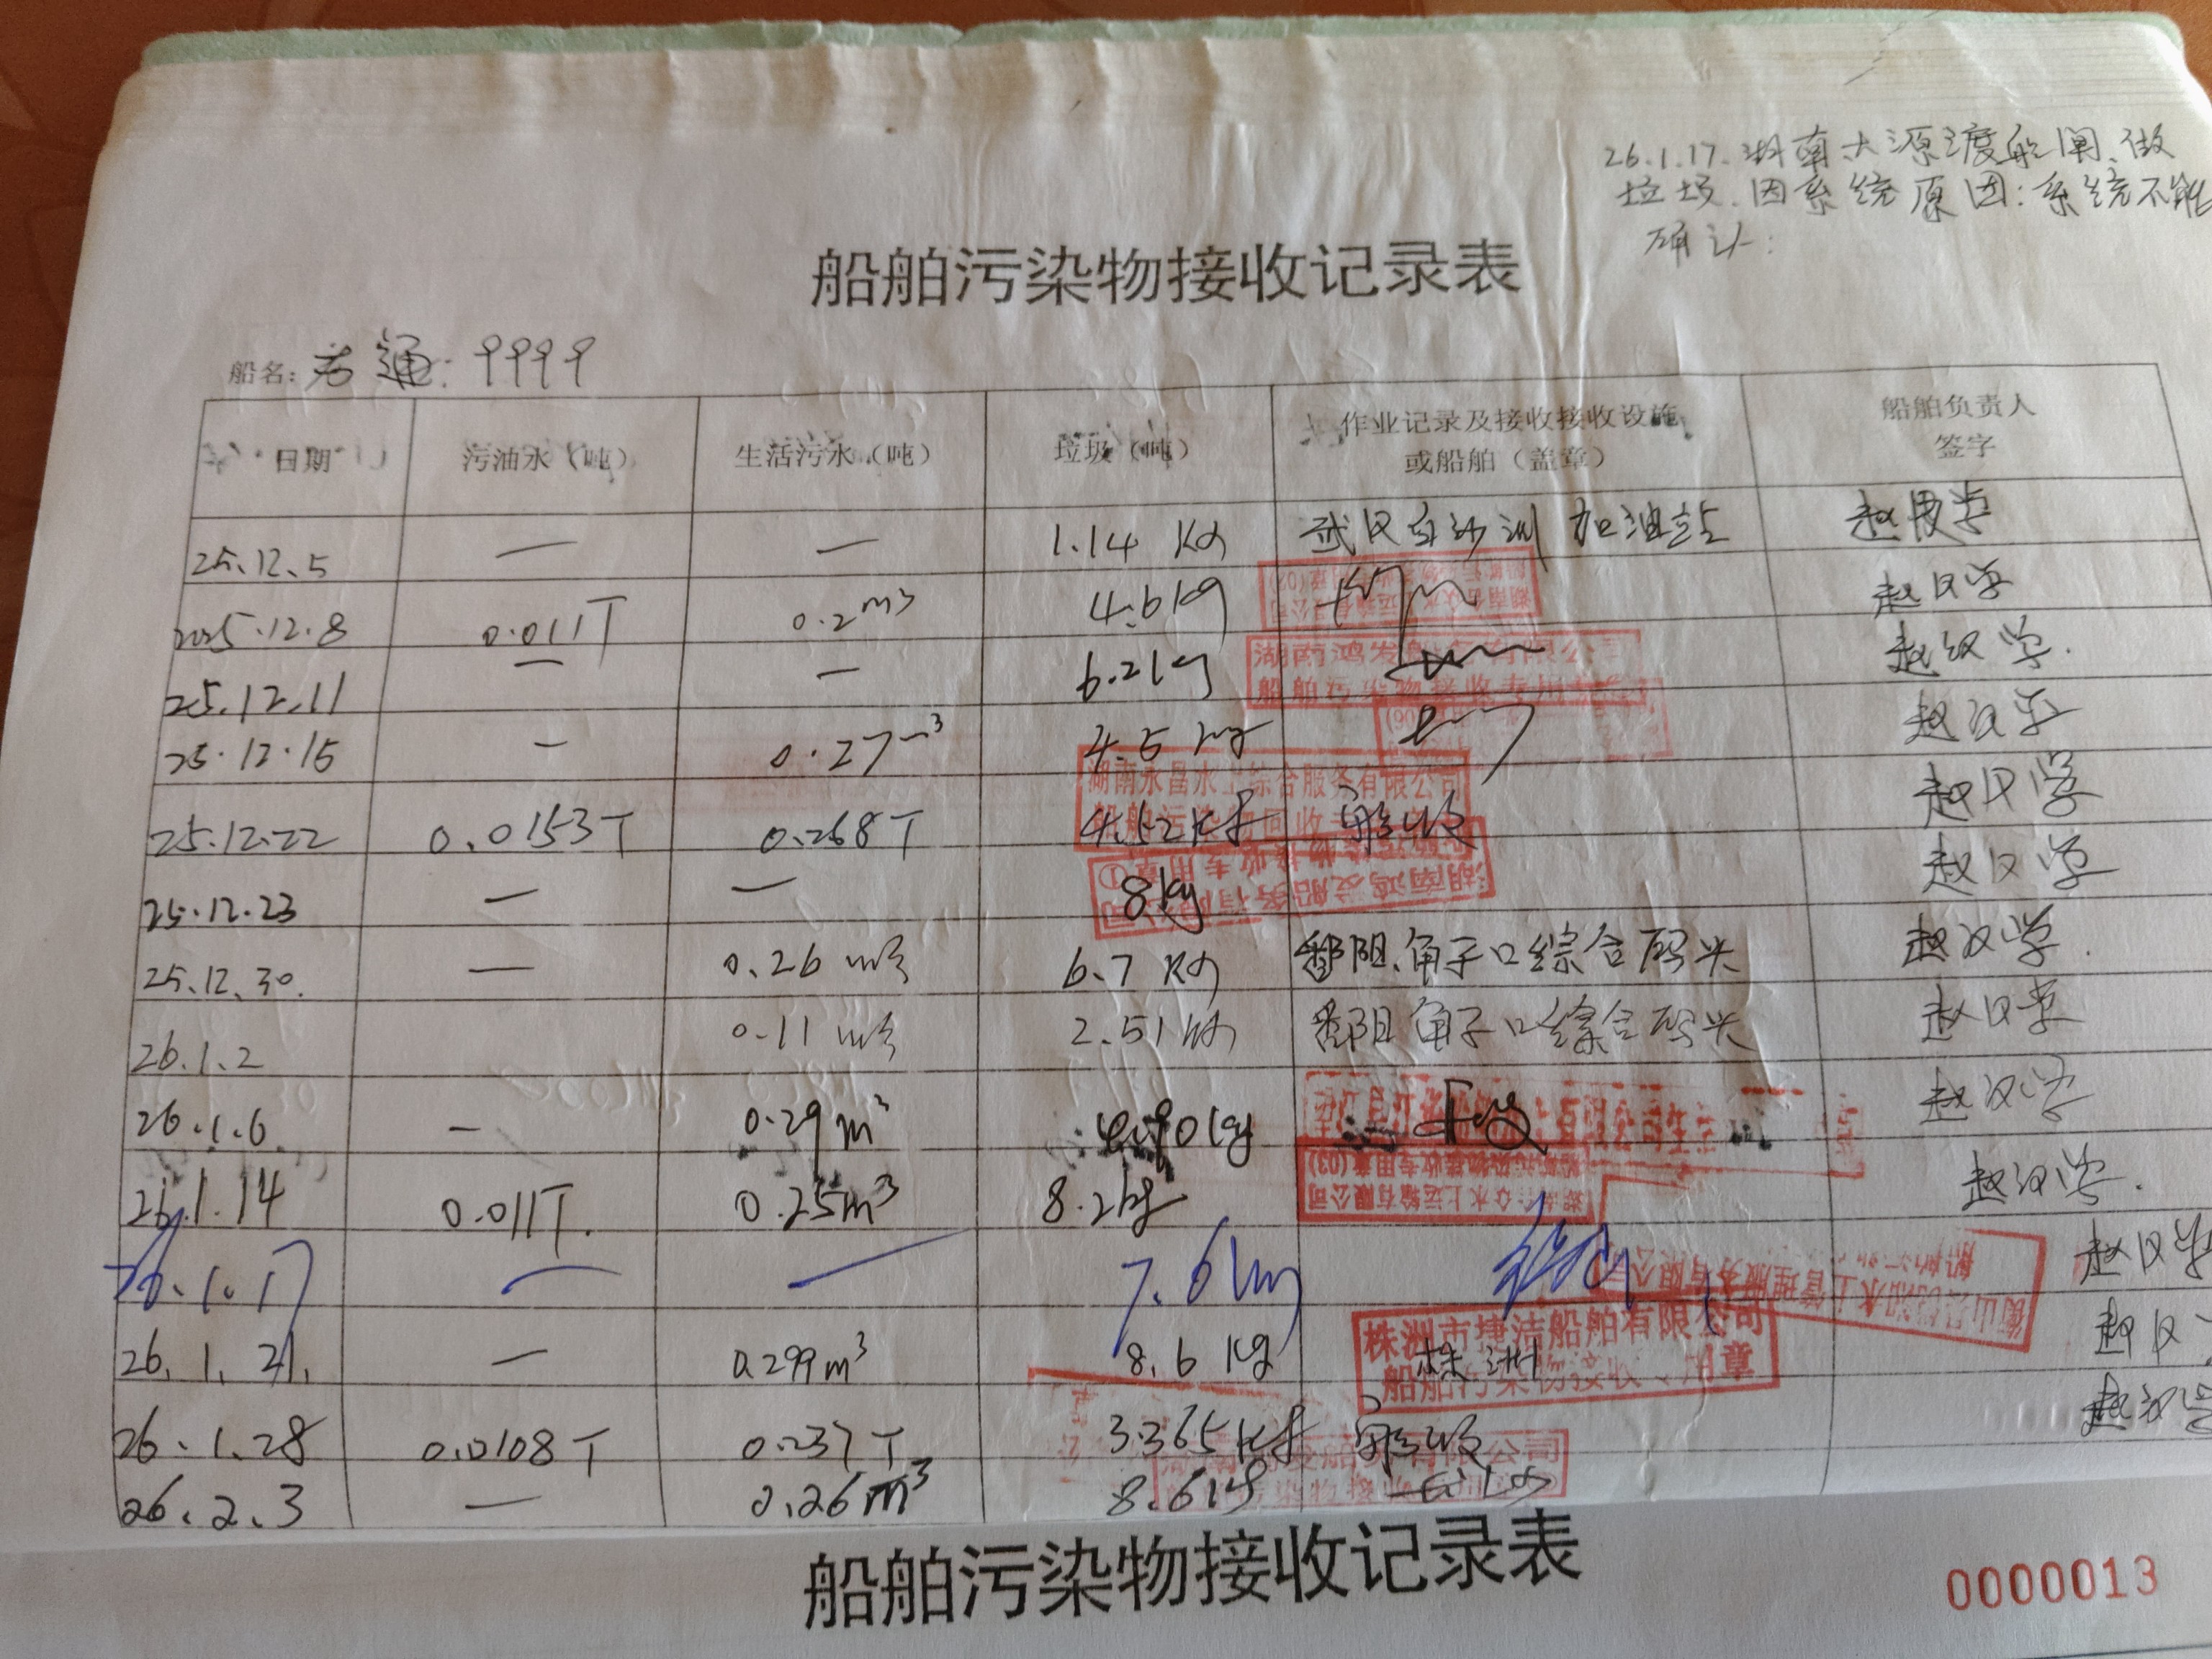 26.1.17.湖南大源渡船闸.做
垃圾.因系统原因:系统不能
确认:
船舶污染物接收记录表
船名: 通:9999
日期 污油水（吨） 生活污水（吨） 垃圾（吨） 作业记录及接收接收设施 船舶负责人
或船舶（盖章） 签字
25.12.5 — — 1.14 Kg 武汉白沙洲加油站 赵汉学
2025.12.8 0.011T 0.2m³ 4.6kg 赵汉学
25.12.11 — — 6.2kg 湖南鸿发船务有限公司 赵汉学.
船舶污染物接收专用章
25.12.15 — 0.27m³ 4.5kg 赵汉学
湖南永昌水上综合服务有限公司
25.12.22 0.0153T 0.268T 4.52kg 赵汉学
25.12.23 — — 8kg 湖南鸿发船务有限公司 赵汉学
25.12.30. — 0.26 m³ 6.7 Kg 鄱阳.角子口综合码头 赵汉学.
26.1.2 0.11 m³ 2.51 kg 鄱阳角子口综合码头 赵汉学
26.1.6 — 0.29m³ 赵汉学
26.1.14 0.011T. 0.25m³ 8.2kg 赵汉学.
26.1.17 — — 7.6kg 赵汉学
26.1.21. — 0.299m³ 8.6 Kg 株洲 赵汉
株洲市捷洁船舶有限公司
船舶污染物接收专用章
26.1.28 0.0108T 0.237T 3.365kg 赵汉学
26.2.3 — 0.26m³ 8.6kg
船舶污染物接收记录表
0000013